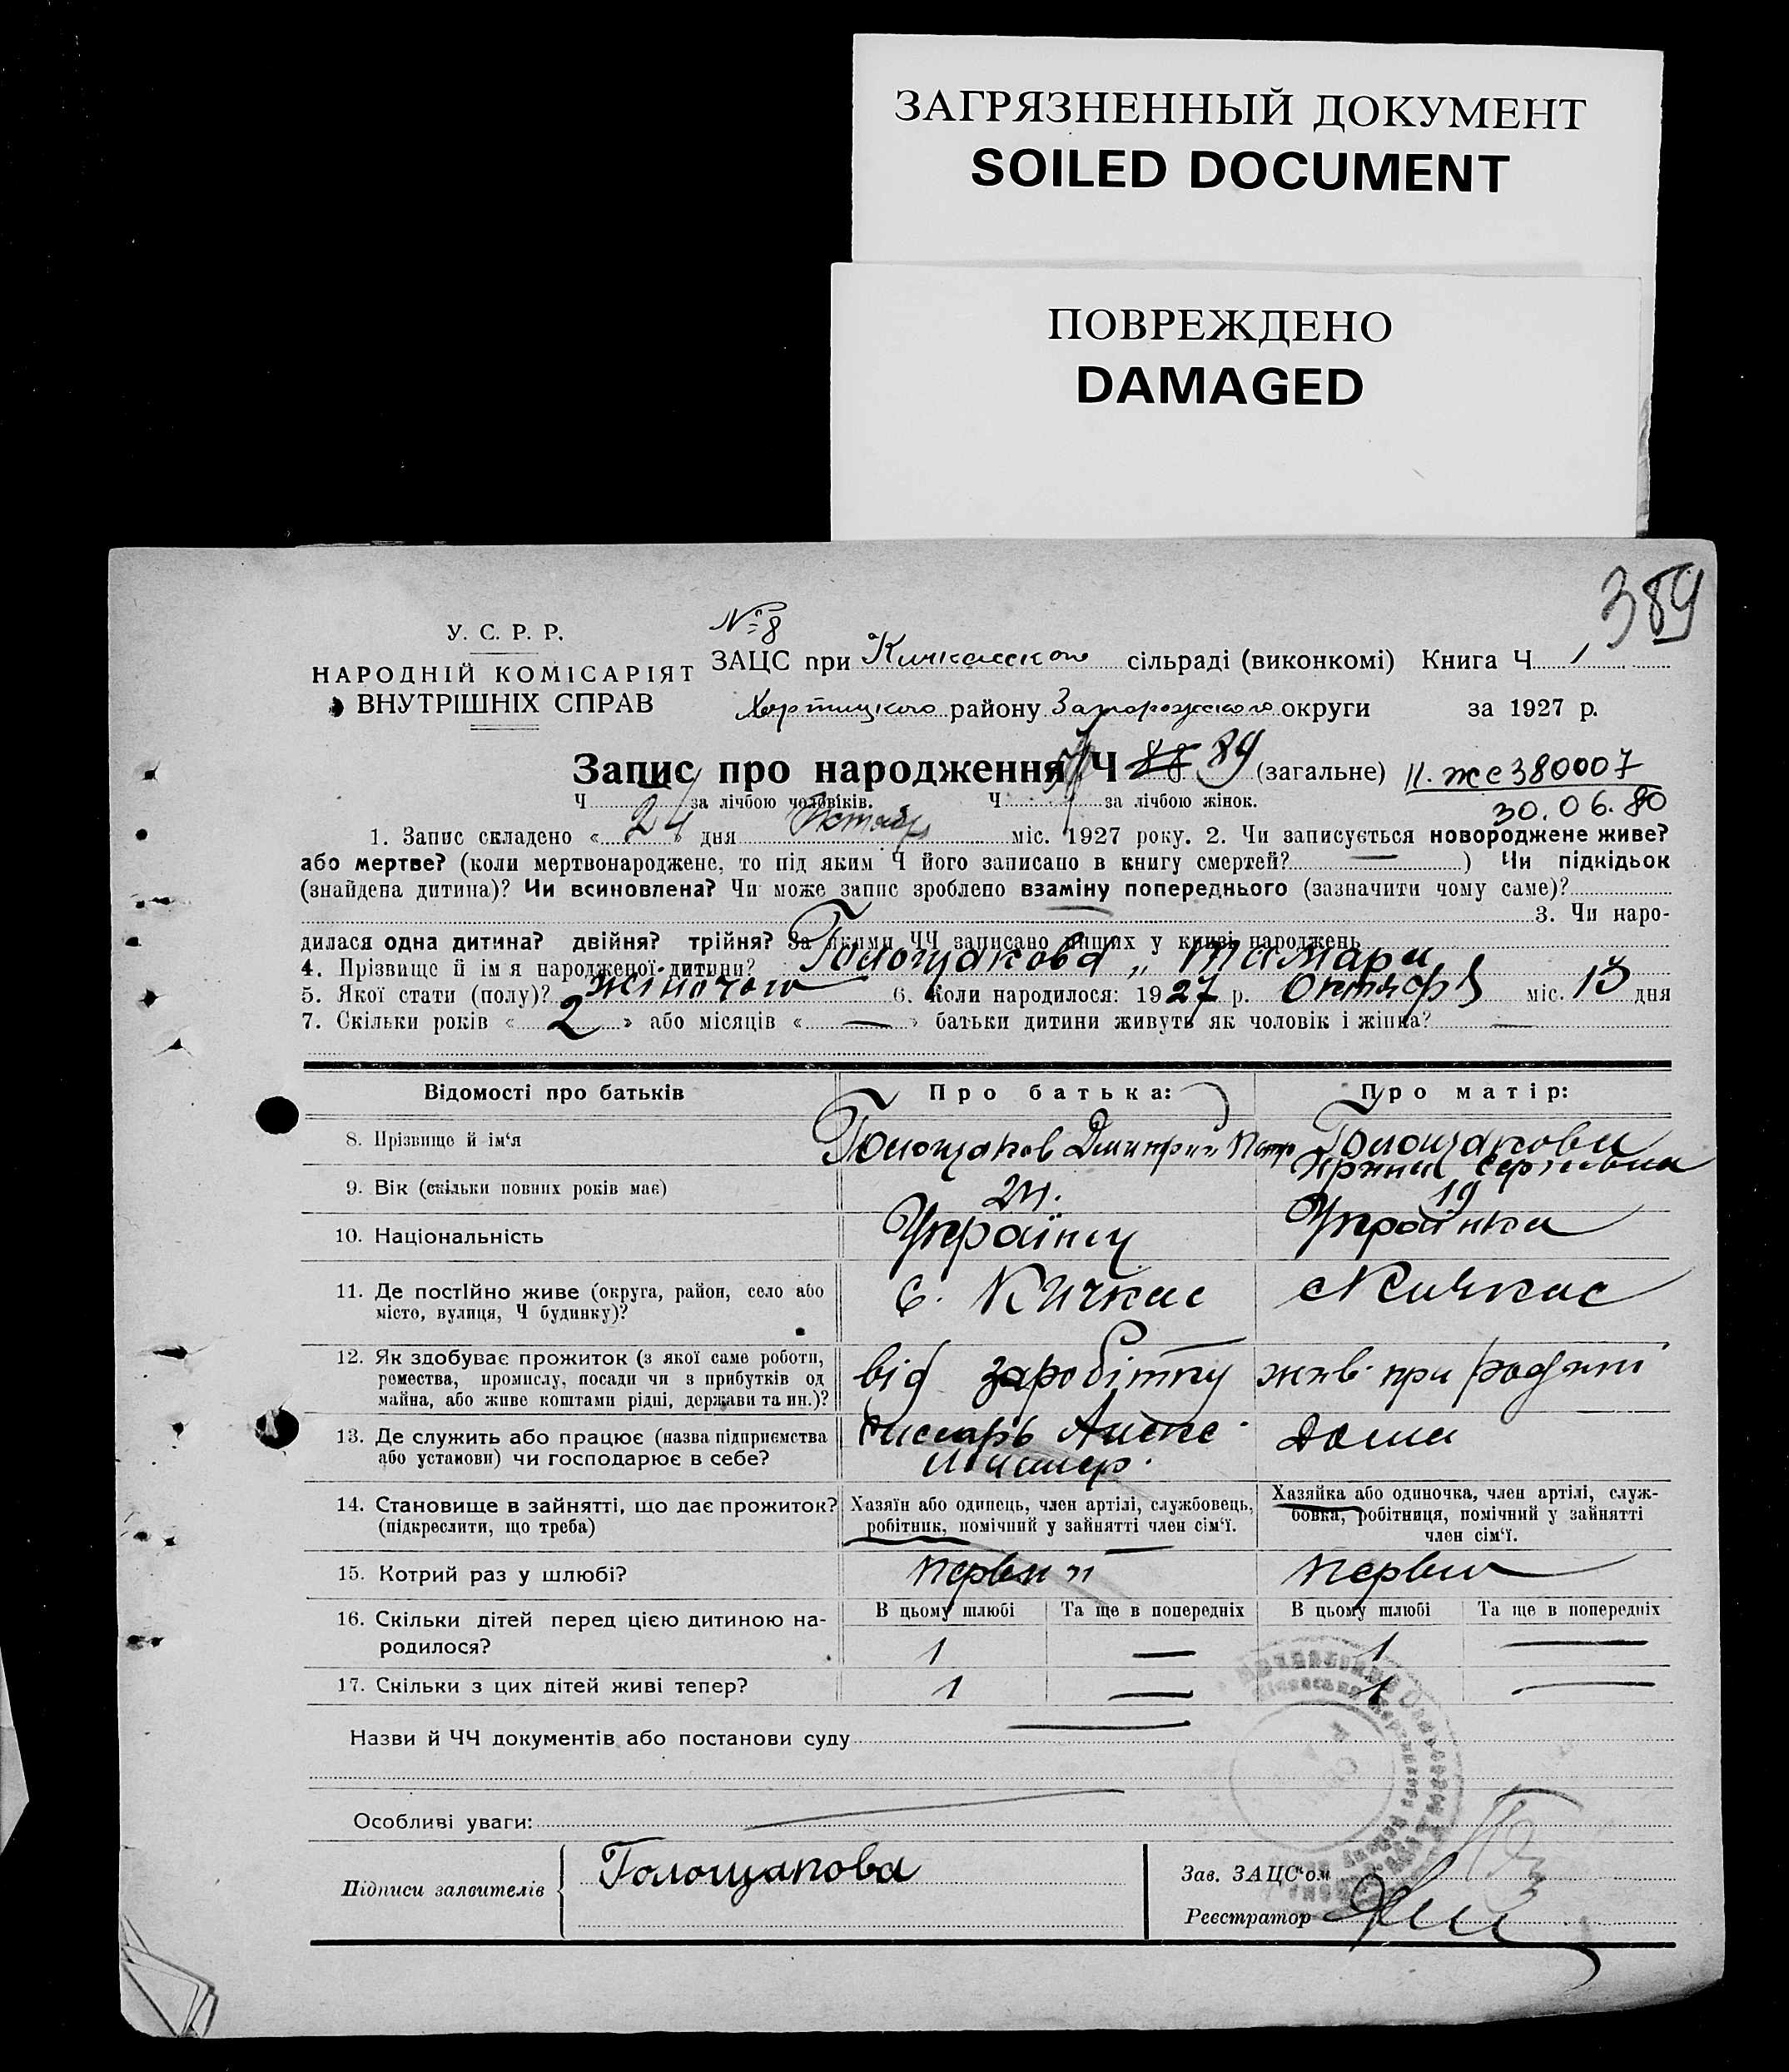 ЗАГРЯЗНЕННЫЙ ДОКУМЕНТ
SOILED DOCUMENT
ПОВРЕЖДЕНО
DAMAGED
389
У. С. Р. Р.
НАРОДНІЙ КОМІСАРІЯТ
ВНУТРІШНІХ СПРАВ
№ 8
ЗАЦС при Кичкасском сільраді (виконкомі) Книга Ч 1
Хортицкого району Запорожского округи за 1927 р.
Запис про народження Ч 88 89 (загальне) II. жс 380007
Ч за лічбою чоловіків. Ч за лічбою жінок. 30.06.80
1. Запис складено « 24 » дня міс. 1927 року. 2. Чи записується новороджене живе?
або мертве? (коли мертвонароджене, то під яким Ч його записано в книгу смертей? — ) Чи підкідьок
(знайдена дитина)? Чи всиновлена? Чи може запис зроблено взаміну попереднього (зазначити чому саме)?
3. Чи наро-
дилася одна дитина? двійня? трійня? За якими ЧЧ записано инших у книзі народжень
4. Прізвище й ім я народженої дитини? Голощакова „ Тамара
5. Якої стати (полу)? жіночого 6. Коли народилося: 1927 р. Октября міс. 13 дня
7. Скільки років « 2 » або місяців « — » батьки дитини живуть як чоловік і жінка? —
Відомості про батьків Про батька: Про матір:
8. Прізвище й ім‘я Голощаков Дмитрий Петр Голощакова
Сергіевна
9. Вік (скільки повних років має) 24. 19
10. Національність Українец Українка
11. Де постійно живе (округа, район, село або місто, вулиця, Ч будинку)? с. Кичкас с Кичкас
12. Як здобуває прожиток (з якої саме роботи,
ремества, промислу, посади чи з прибутків од
майна, або живе коштами рідні, держави та ин.)? від заробітку живе при
13. Де служить або працює (назва підприємства
або установи) чи господарює в себе? Дома
14. Становище в зайнятті, що дає прожиток?
(підкреслити, що треба)
Хазяїн або одинець, член артілі, службовець,
робітник, помічний у зайнятті член сім‘ї.
Хазяйка або одиночка, член артілі, служ-
бовка, робітниця, помічний у зайнятті
член сім‘ї.
15. Котрий раз у шлюбі? первий перви
16. Скільки дітей перед цією дитиною на-
родилося?
В цьому шлюбі Та ще в попередніх В цьому шлюбі Та ще в попередніх
1 — 1 —
17. Скільки з цих дітей живі тепер? 1 — 1 —
Назви й ЧЧ документів або постанови суду —
Особливі уваги:
Підписи заявителів Голощапова
Зав. ЗАЦС‘ом
Реєстратор